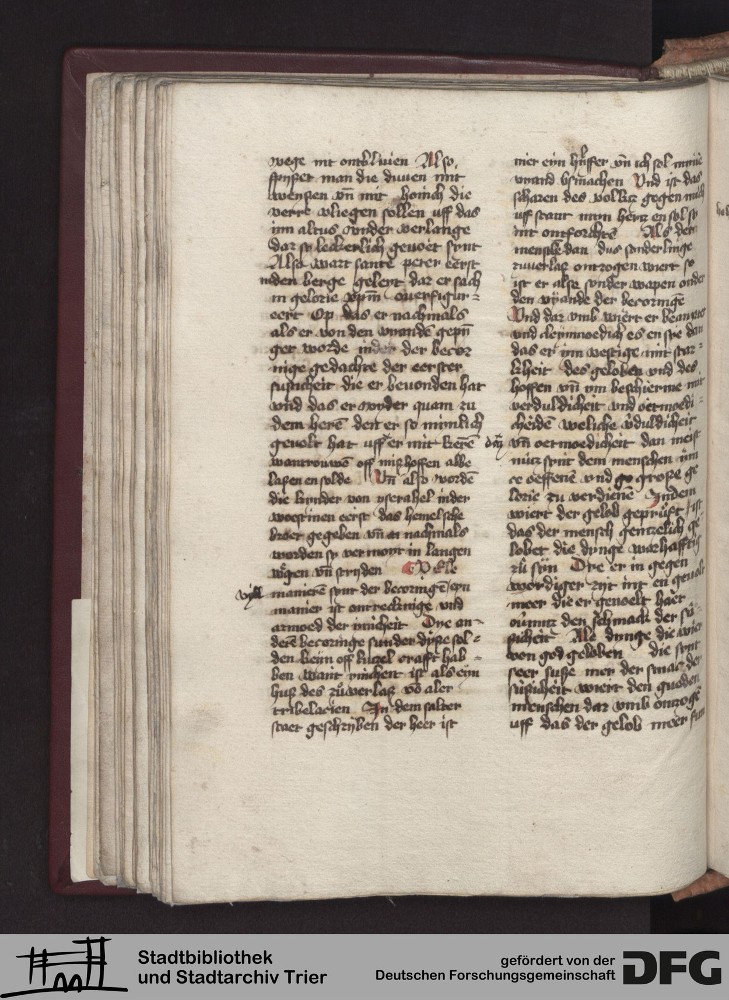 wege nit ontbliuen Also
spyset man die duuen mit
wensen vn̄ mit honich die
verre vliegen sollen uff das
inn altus wider verlange
dar so leckerlich gevoet synt
Also wart sante peter eerst
in den berge geleyt dar er sach
in gelorie xp̄m ouerfigur=
eert Op das er nachmals
als er von den viandē gepı̄
get worde in der becor
nige gedachte der eerster
susticheit die er beuonden hat
vnd das er wyder quam zu
dem herē den er so mynlich
gevolt hat uff er mit keerē
wantrouwē off mishoffen abbe
lassen en solde Vn̄ also worden
die kynder von ysrahel in der
woestinen eerst das hemelsche
broet gegeben vn̄ nachmals
worden sy vermoyt in langen
wegen vn̄ stryden Vele
manierē synt der becoringē eyn
manier ist ontreckinge vnd
armoed der ynicheit Dye an=
derē becoringe sunder dyse sol=
den kein off luczel crafft hab=
ben want ynichent ist als eyn
huß des zuuerlaß vō aler
tribelacien In dem salter
staet geschryben der heer ist
mer eyn hulffer vn̄ ich sol mynē
vyand vsmachen Vnd ist das
scharen des volkz gegen mich
uff staent myn hercz en sol sy
nit ontforchtē Als der
mensch dan dus sonderlinge
zuuerlaß ontzogen wiert so
ist er als sunder wapen onder
den vyande der becoringē
Vnd dar vmb wiert er beanwert
vnd dermoedich es en sye dan
das er ym vestige mit star=
kheit des geloben vnd des
hoffen vn̄ ym beschierme mit
verduldicheit vnd oetmoedi=
cheiden weliche vduldicheit
vn̄ oetmoedicheit dan meist
nucz synt dem menschen ym
ee oeffene vnd grosse ge
lorie zu verdienē Indem
wiert der gelob gepruft ist
das der mensch genczelich ge
lobet die dynge warhafftig
zu syn Dye er in gegen
werdiger zyt nit en gevolt
meer die er gevoelt haet
ouermicz den schmack der su
ssicheit Als dynge die wir
von god geloben die synt
seer suße mer der smac der
susicheit wiert den guoden
menschen dar vmb ontzoge
uff das der gelob meer
Stadtbibliothek
und Stadtarchiv Trier
gefördert von der
Deutschen Forschungsgemeinschaft
DFG